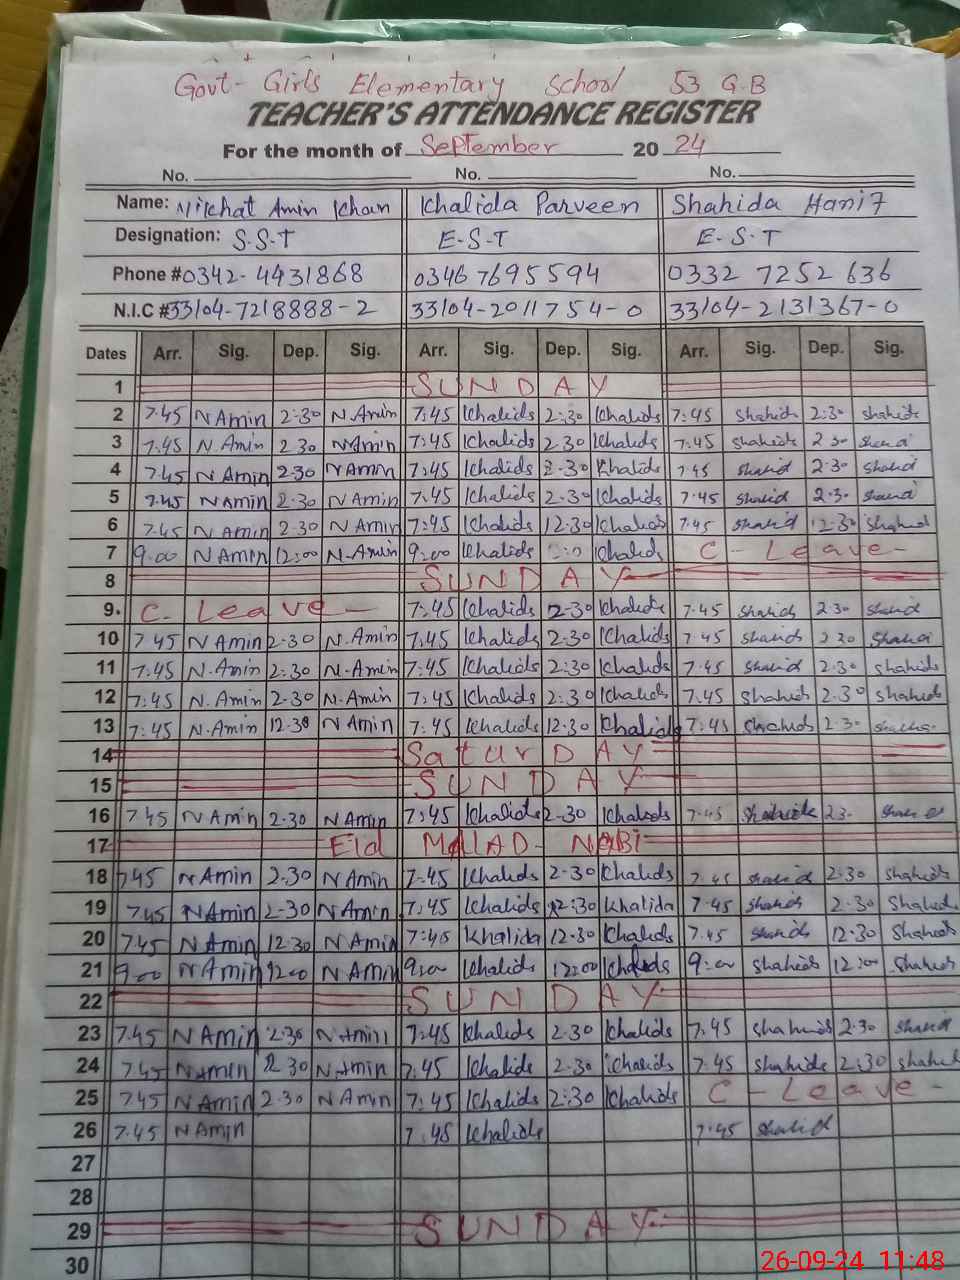 Govt- Girls Elementary School 53 G.B
TEACHER'S ATTENDANCE REGISTER
For the month of September 20 24
No. No. No.
Name: Amin Khan Khalida Parveen Shahida Hanif
Designation: S.S.T E-S-T E-S-T
Phone # 0342-4431868 0346 7695594 0332 7252 636
N.I.C # 33104-7218888-2 33104-2011754-0 33104-2131367-0
Dates Arr. Sig. Dep. Sig. Arr. Sig. Dep. Sig. Arr. Sig. Dep. Sig.
1 SUNDAY
2 7.45 N Amin 2:30 N.Amin 7:45 Khalids 2:30 Khalids 7:45 Shahids 2:30 shahids
3 7.45 N.Amin 2.30 N Amin 7:45 Khalids 2.30 Khalids 7:45 shahids 2 30
4 7.45 N Amin 2.30 N Amin 7:45 Khalids 2-30 Khalids 7.45 shahid 2.30 shahid
5 7.45 N Amin 2.30 N Amin 7:45 Khalids 2.30 Khalids 7.45 shahid 2.30
6 7.45 N Amin 2.30 N Amin 7:45 Khalids 12.30 Khalids 7.45 shahid 12.30 Shahid
7 9.00 N Amin 12:00 N-Amin 9:00 Khalids Khalids C - Leave -
8 SUNDAY
9. C. Leave - 7:45 Khalids 2-30 Khalids 7.45 shahids 2.30 shahid
10 7.45 N Amin 2-30 N.Amin 7:45 Khalids 2.30 Khalids 7.45 shahids 2 30 shahid
11 7.45 N.Amin 2.30 N-Amin 7:45 Khalids 2:30 Khalids 7.45 shahid 2.30 shahids
12 7.45 N.Amin 2.30 N.Amin 7:45 Khalids 2:30 Khalids 7.45 shahids 2.30 shahids
13 7:45 N.Amin 12.30 N Amin 7:45 Khalids 12.30 Khalids 7:45 Shahids 2.30
14 SaturDAY
15 SUNDAY
16 7.45 N Amin 2.30 N Amin 7:45 Khalids 2-30 Khalids 7:45 23-
17 Eid MILAD- NABI
18 7.45 N Amin 2.30 N Amin 7:45 Khalids 2.30 Khalids 7.45 shahid 2:30 shahids
19 7.45 N Amin 2-30 N Amin 7:45 Khalids 2:30 Khalida 7.45 shahids 2.30 Shahids
20 7.45 N Amin 12.30 N Amin 7:45 Khalida 12.30 Khalids 7.45 shahids 12.30 Shahids
21 9.00 N Amin 12.00 N Amin 9:00 Khalids 12:00 Khalids 9:00 shahids 12:00 Shahids
22 SUNDAY
23 7.45 N Amin 2.30 N Amin 7:45 Khalids 2.30 Khalids 7.45 shahids 2.30 shahid
24 7.45 N Amin 2 30 N Amin 7.45 Khalids 2.30 Khalids 7.45 shahids 2:30 shahid
25 7.45 N Amin 2.30 N Amin 7:45 Khalids 2:30 Khalids C - Leave -
26 7.45 N Amin 7.45 Khalids 7.45 shahid
27
28
29 SUNDAY
30
26-09-24 11:48